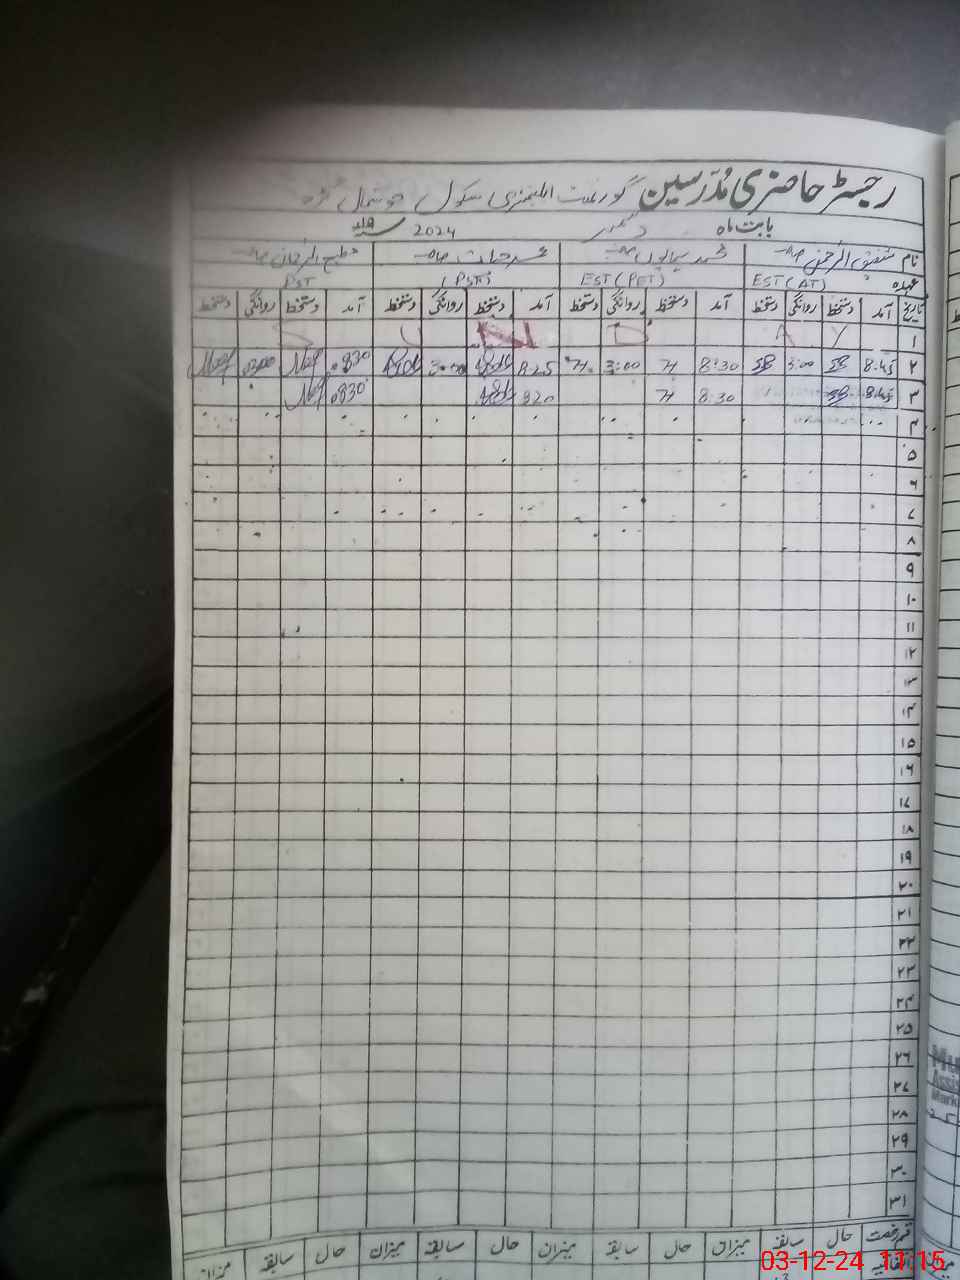 رجسٹر حاضری مُدرسین گورنمنٹ ایلیمنٹری سکول
بابت ماہ دسمبر 2024
نام شفیق الرحمٰن صاحب محمد ہمایوں صاحب محمد حیات صاحب مطیع الرحمان صاحب
عہدہ EST (AT) EST (PET) (PST) PST
تاریخ آمد دستخط روانگی دستخط آمد دستخط روانگی دستخط آمد دستخط روانگی دستخط آمد دستخط روانگی دستخط
۱ S U N D A Y
۲ 8:45 3:00 8:30 3:00 8:25 830
۳ 8:45 8:30 820 830
۴
۵
۶
۷
۸
۹
۱۰
۱۱
۱۲
۱۳
۱۴
۱۵
۱۶
۱۷
۱۸
۱۹
۲۰
۲۱
۲۲
۲۳
۲۴
۲۵
۲۶
۲۷
۲۸
۲۹
۳۰
۳۱
قسم رخصت حال سابقہ میزان حال سابقہ میزان حال سابقہ میزان حال سابقہ میزان
اتفاقیہ
Mu
Assis
Mark
03-12-24 11:15